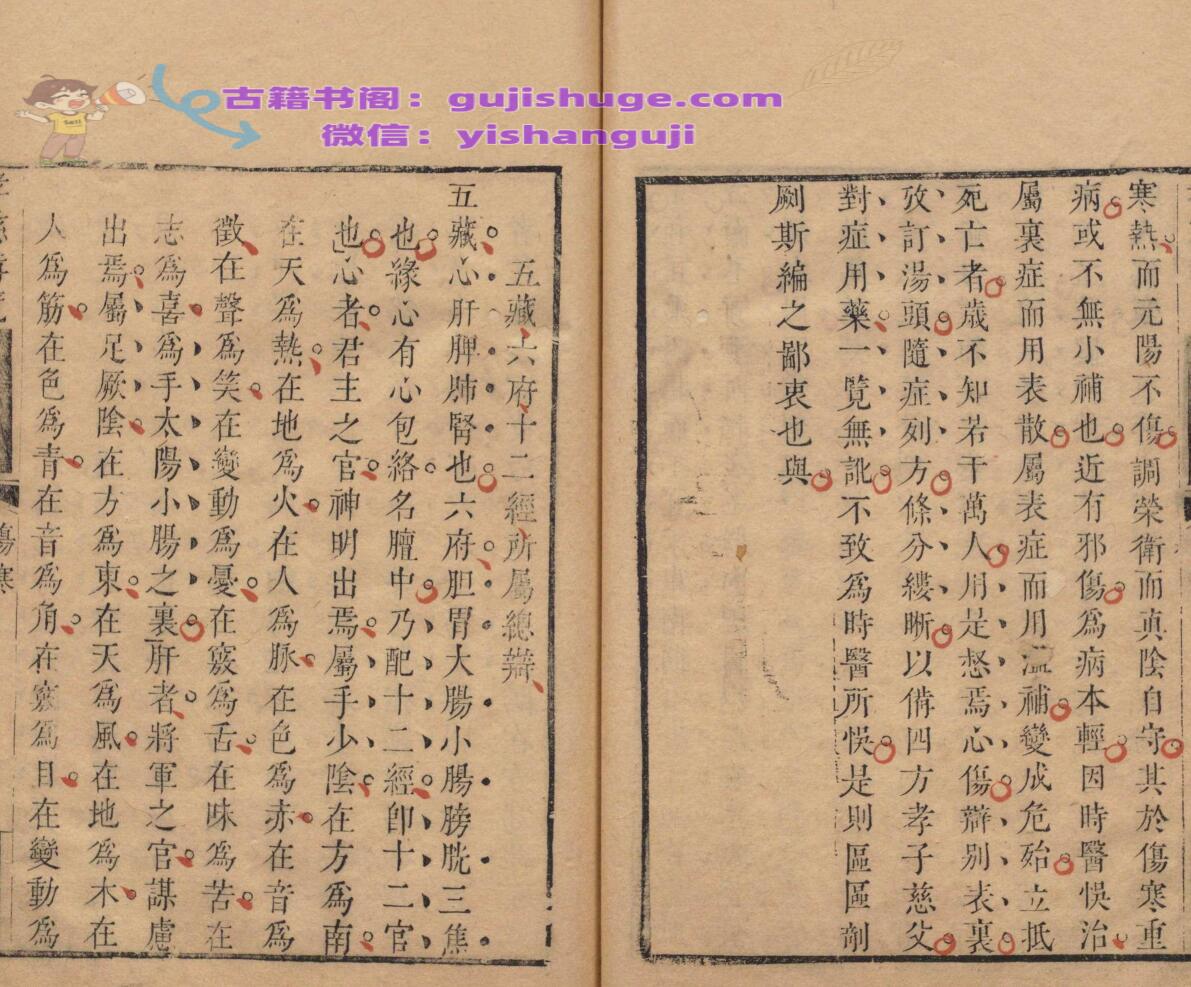 古籍书阁：gujishuge.com
微信：yishanguji
寒熱而元陽不傷調榮衛而真陰自守其於傷寒重
病或不無小補也近有邪傷爲病本輕因時醫悞治
屬裏症而用表散屬表症而用溫補變成危殆立抵
死亡者歲不知若干萬人用是惄焉心傷辯別表裏
攷訂湯頭隨症列方條分縷晰以備四方孝子慈父
對症用藥一覽無訛不致爲時醫所悞是則區區剞
劂斯編之鄙衷也與
五藏六府十二經所屬總辯
五藏心肝脾肺腎也六府胆胃大腸小腸膀胱三焦
也緣心有心包絡名膻中乃配十二經卽十二官
也心者君主之官神明出焉屬手少陰在方爲南
在天爲熱在地爲火在人爲脉在色爲赤在音爲
徵在聲爲笑在變動爲憂在竅爲舌在味爲苦在
志爲喜爲手太陽小腸之裏肝者將軍之官謀慮
出焉屬足厥陰在方爲東在天爲風在地爲木在
人爲筋在色爲青在音爲角在竅爲目在變動爲
傷寒